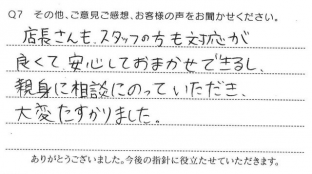 Q7 その他、ご意見ご感想、お客様の声をお聞かせください。
店長さんも、スタッフの方も対応が
良くて、安心しておまかせできるし、
親身に相談にのっていただき、
大変たすかりました。
ありがとうございました。今後の指針に役立たせていただきます。